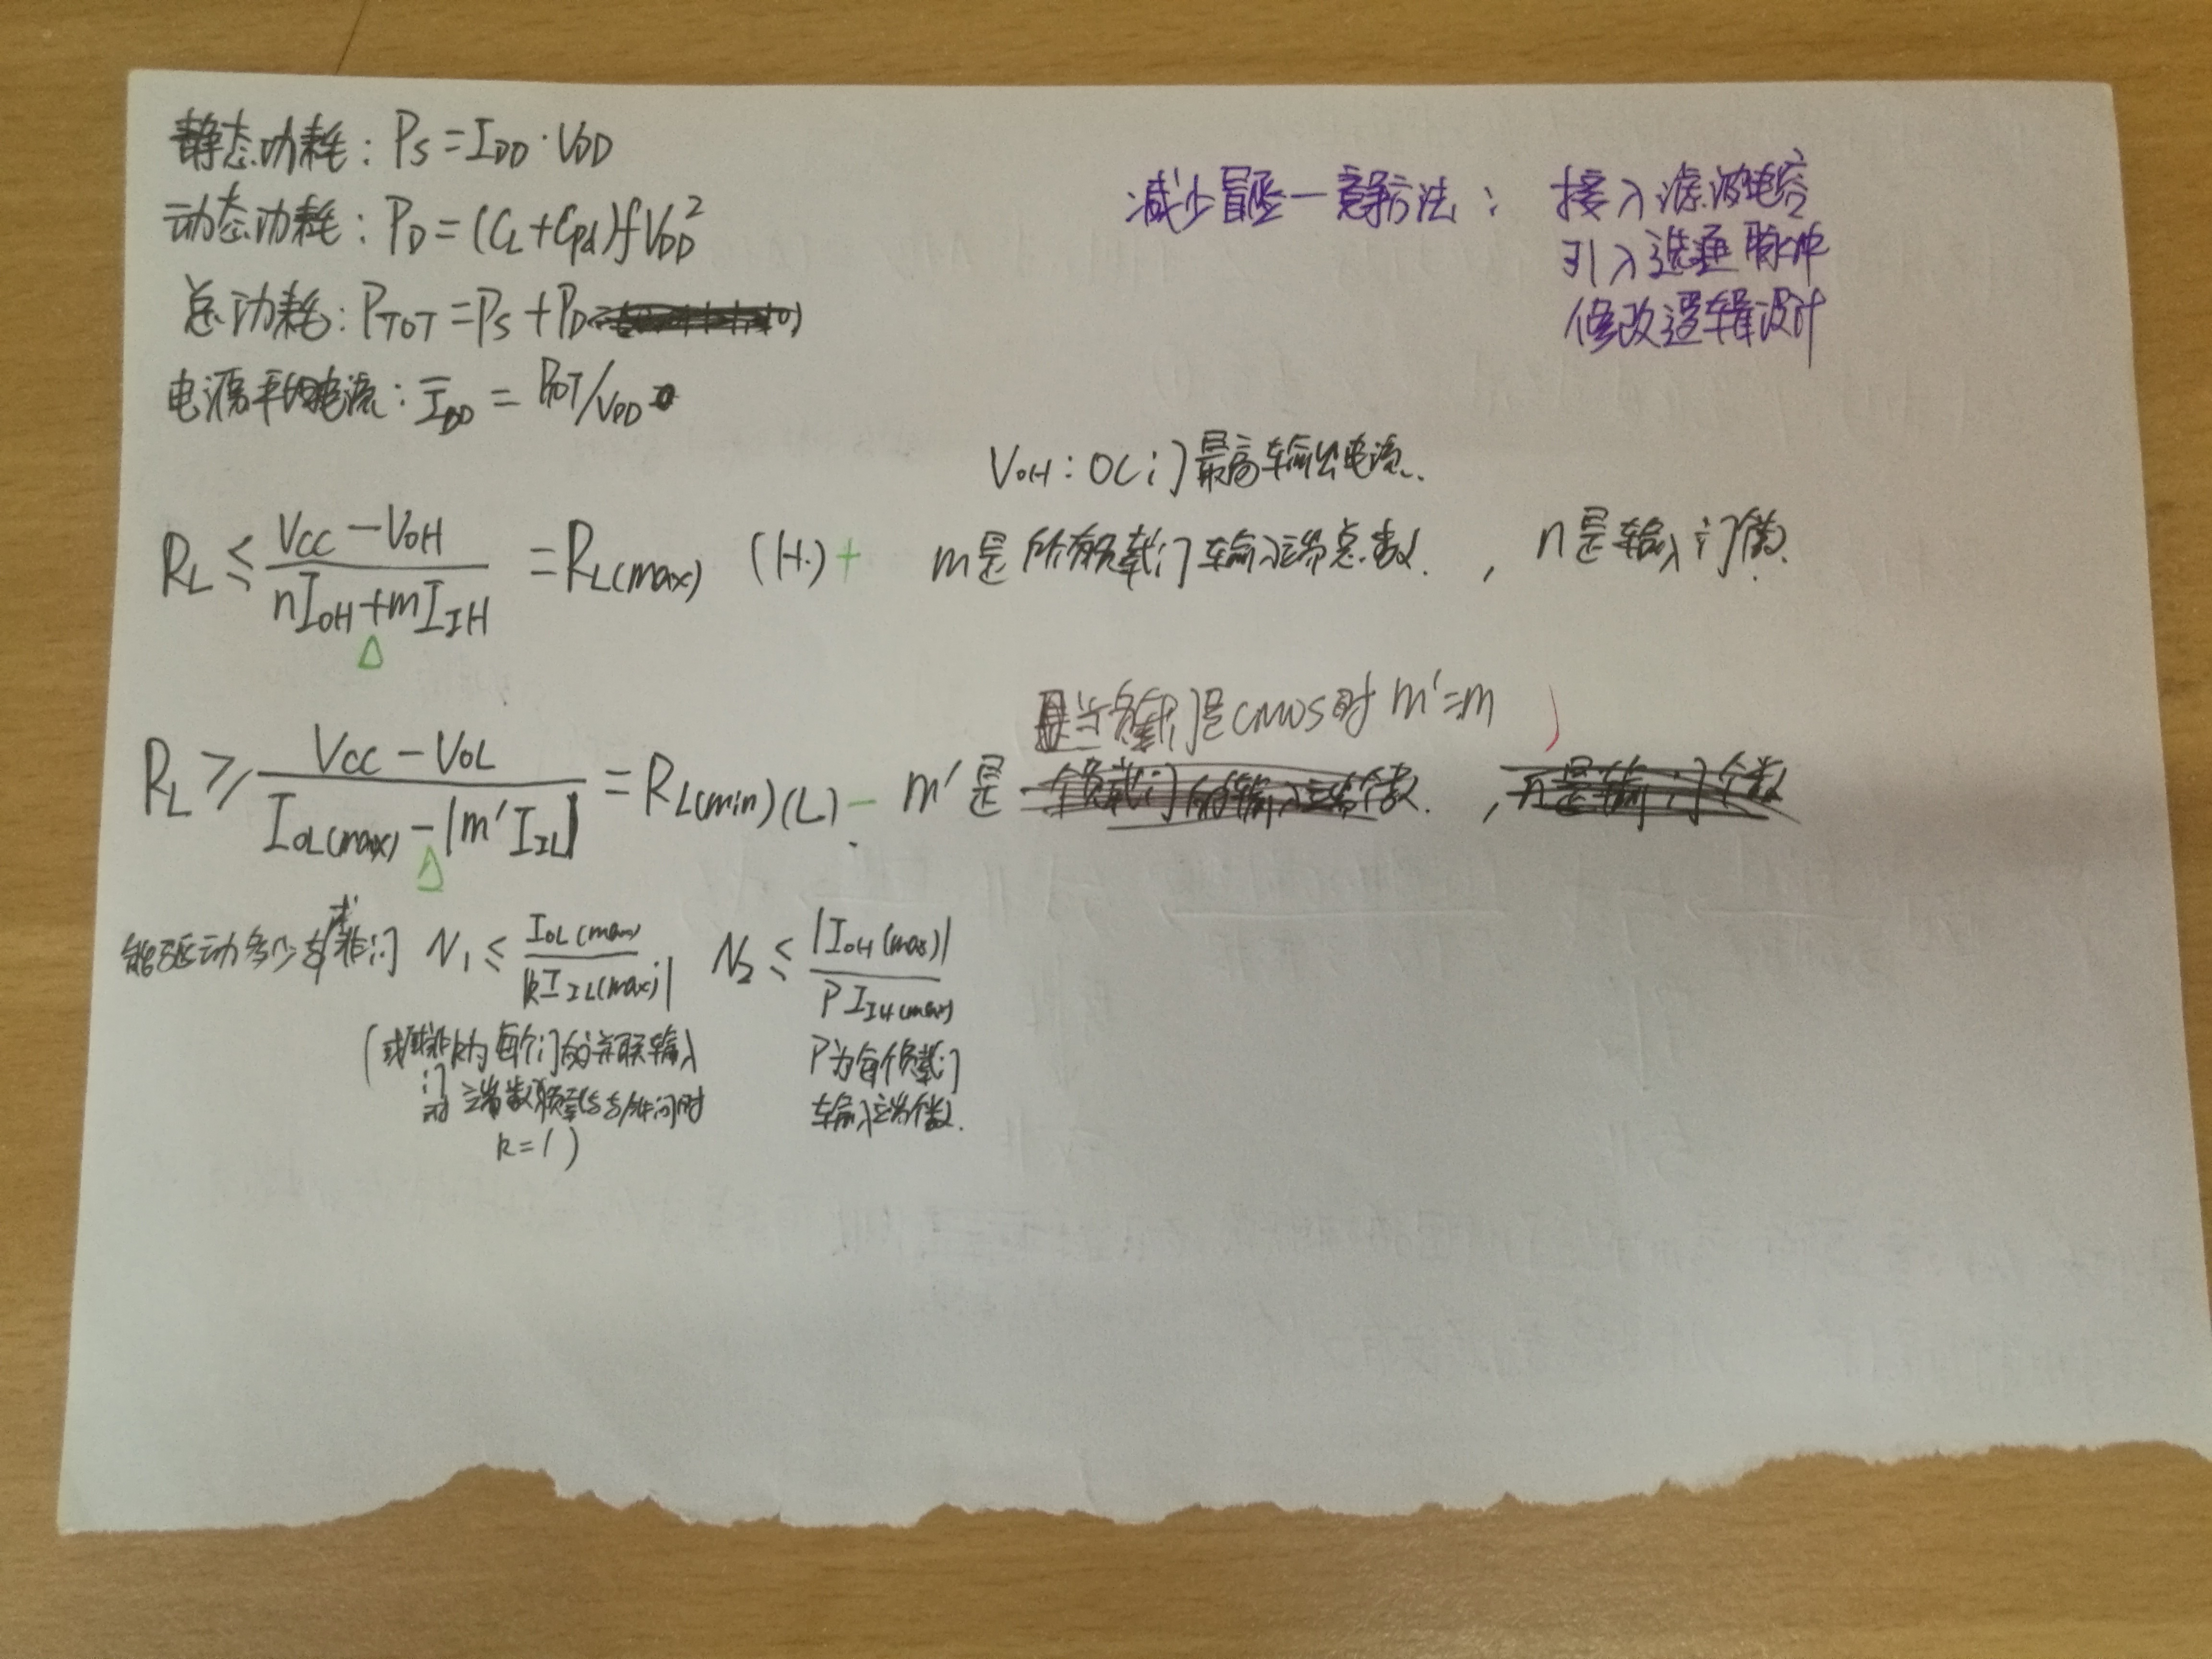 静态功耗：Ps=IDD·VDD
动态功耗：PD=(CL+Cpd)fVDD²
总功耗：PTOT=Ps+PD
电源平均电流：IDD=PTOT/VDD
减少冒险—竞争方法：接入滤波电容
引入选通脉冲
修改逻辑设计
VOH：OC门最高输出电流.
RL≤(VCC-VOH)/(nIOH+mIIH)=RL(max) (H.)+ m是所有负载门输入端总数. ，n是输入门个数.
Δ
当负载门是CMOS时 m'=m
RL≥(VCC-VOL)/(IOL(max)-|m'IIL|)=RL(min)(L)- m'是
Δ
能驱动多少与非门 N1≤IOL(max)/|kIIL(max)| N2≤|IOH(max)|/PIIH(max)
(或非k为每个门的并联输入
门时 端数 负载与与非门时
k=1)
P为每个负载门
输入端个数.